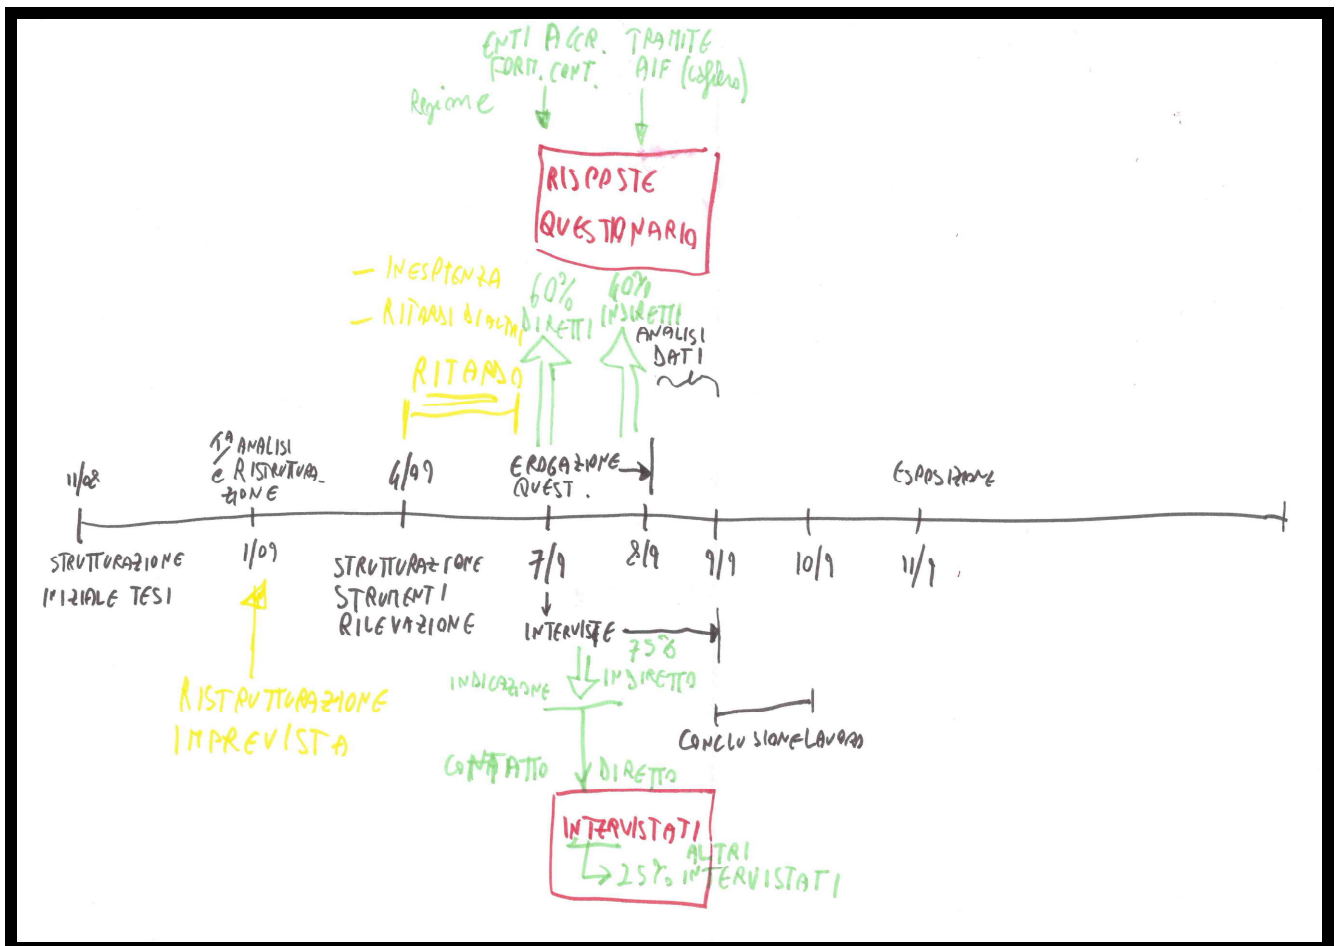 ENTI ACCR.
FORM. CONT.
TRAMITE
AIF (cafiero)
Regione
RISPOSTE
QUESTIONARIO
– INESPIENZA
– RITARDI DI ALTRI
60%
DIRETTI
40%
INDIRETTI
ANALISI
DATI
RITARDO
11/08
1ª ANALISI
e RISTRUTTURA-
ZIONE
4/09
EROGAZIONE
QUEST.
ESPOSIZIONE
STRUTTURAZIONE
INIZIALE TESI
1/09
STRUTTURAZIONE
STRUMENTI
RILEVAZIONE
7/9
8/9
9/9
10/9
11/9
INTERVISTE
75%
INDICAZIONE INDIRETTO
RISTRUTTURAZIONE
IMPREVISTA
CONCLUSIONE LAVORO
CONTATTO DIRETTO
INTERVISTATI
25% ALTRI
INTERVISTATI